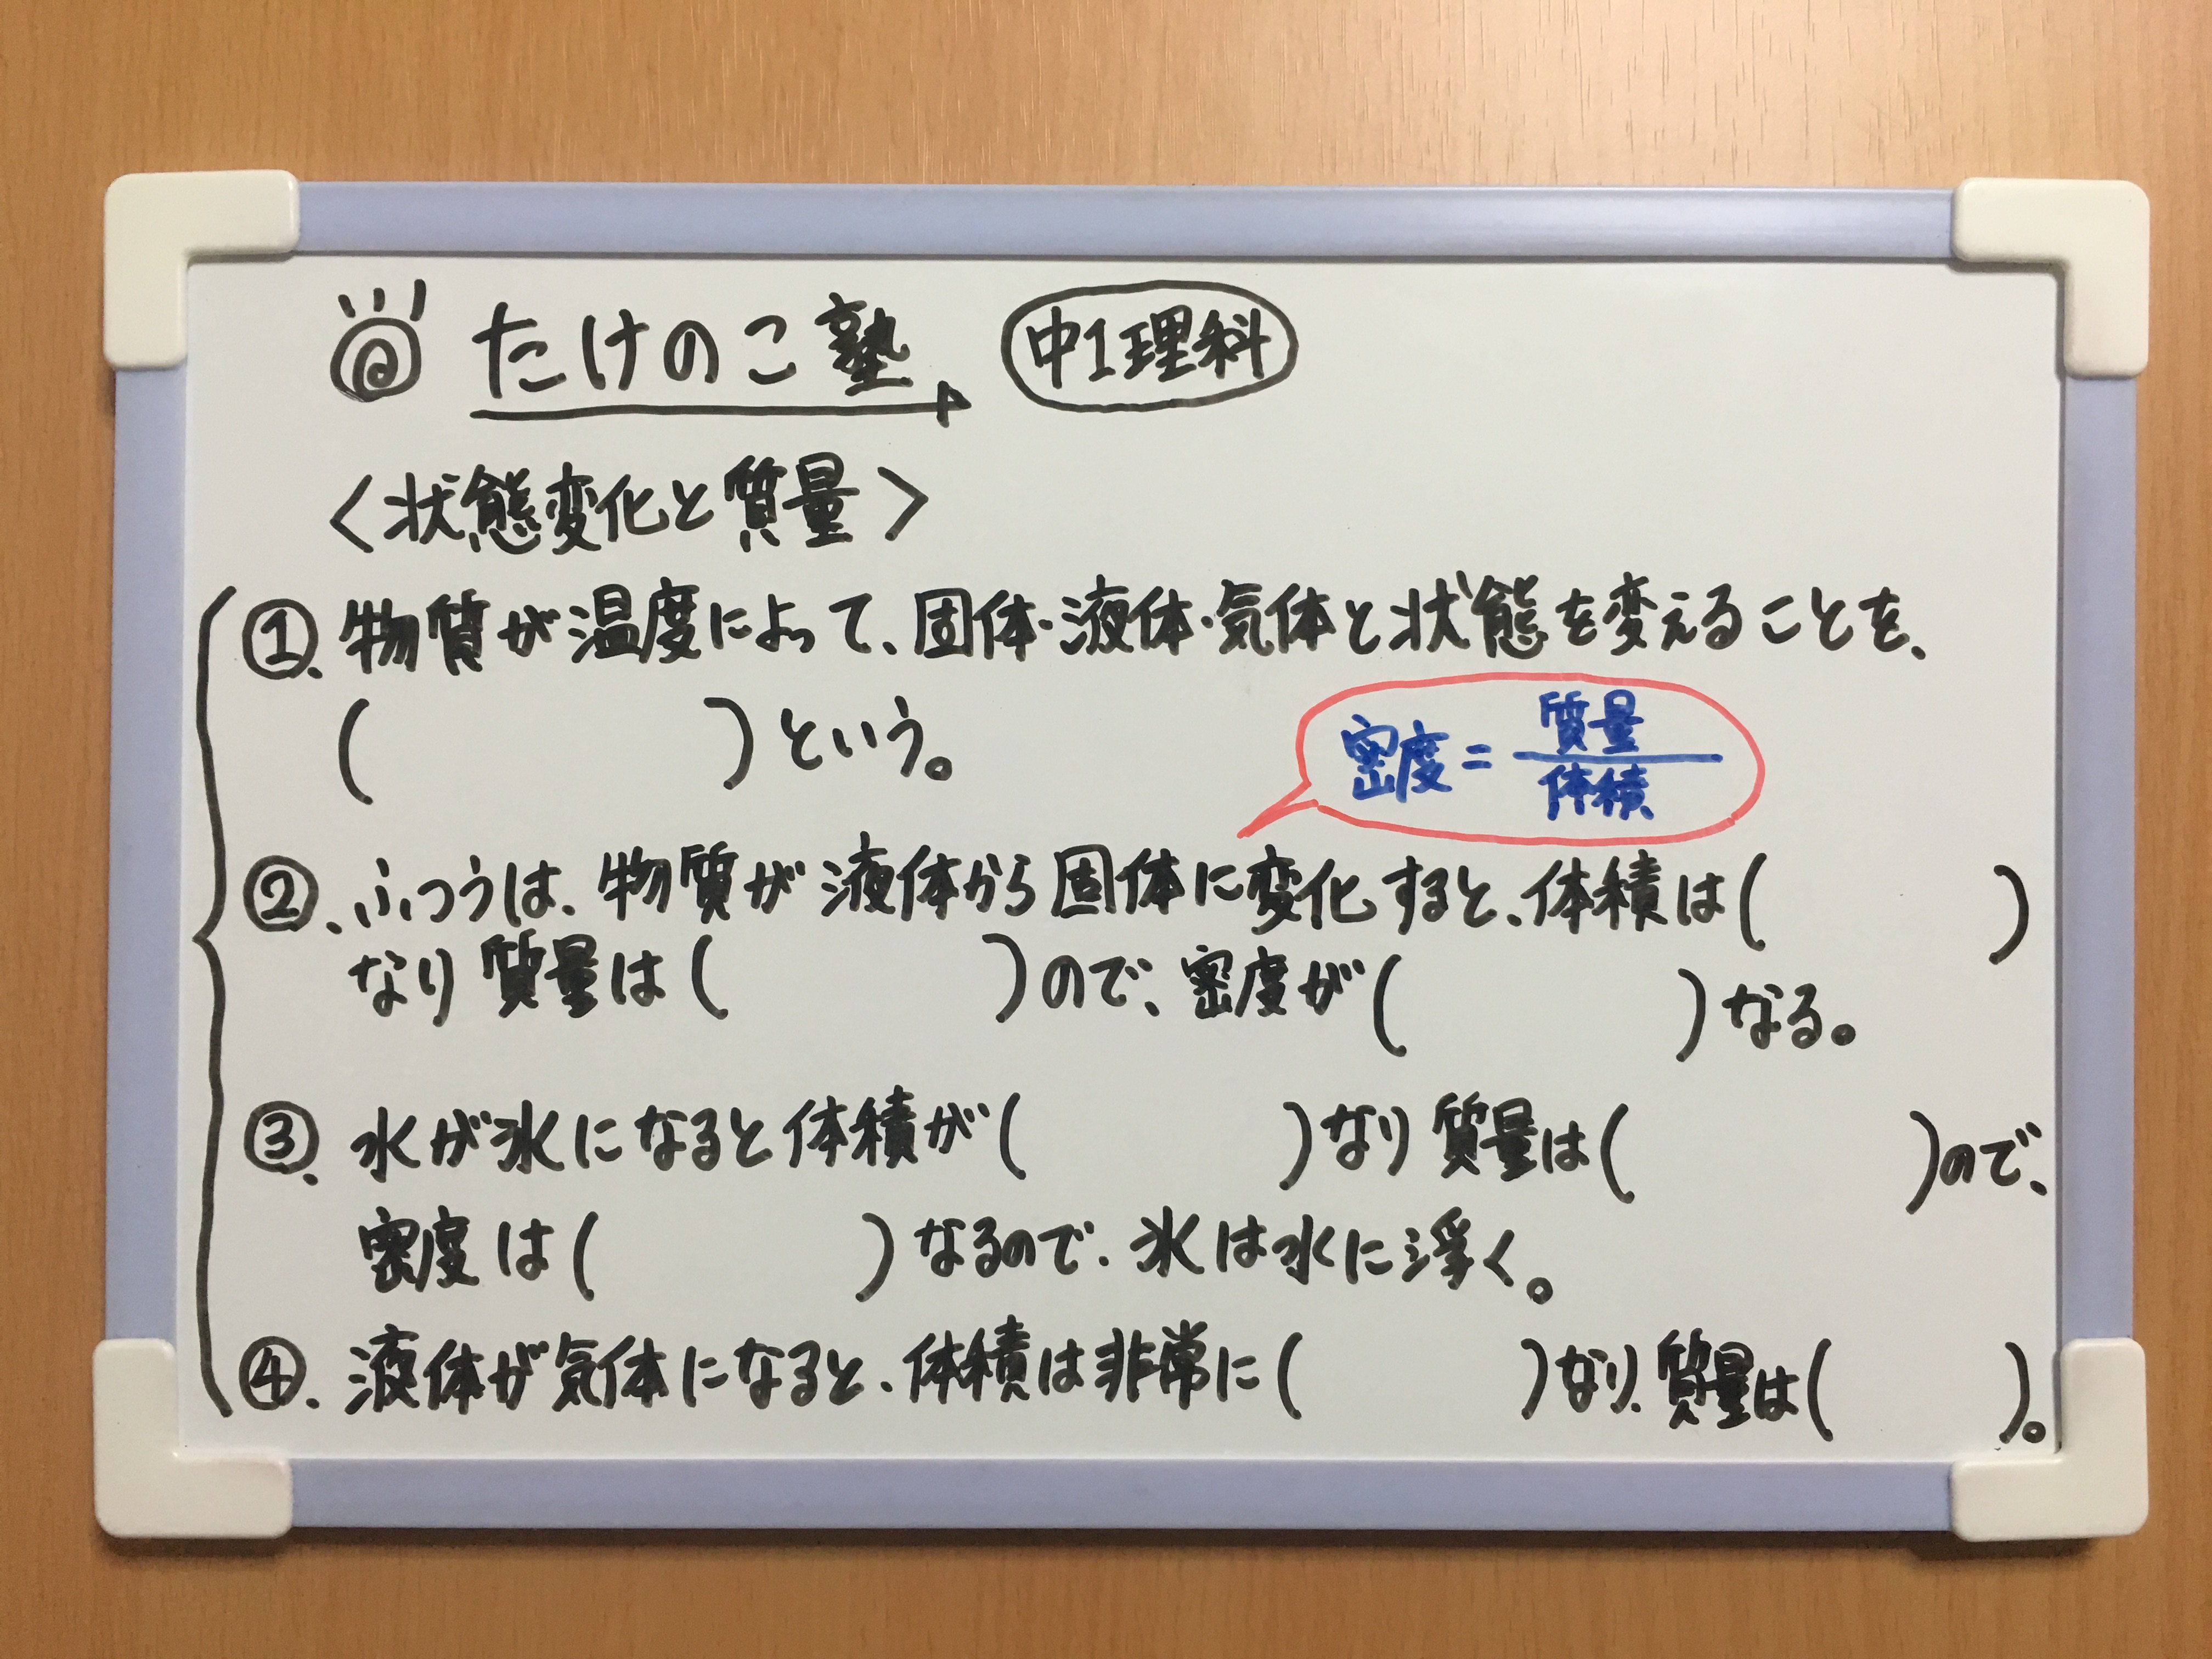 たけのこ塾 中1理科
<状態変化と質量>
①. 物質が温度によって、固体・液体・気体と状態を変えることを、
( )という。
密度=質量/体積
②、ふつうは、物質が液体から固体に変化すると、体積は( )
なり質量は( )ので、密度が( )なる。
③. 水が氷になると体積が( )なり質量は( )ので、
密度は( )なるので、氷は水に浮く。
④. 液体が気体になると、体積は非常に( )なり、質量は( )。